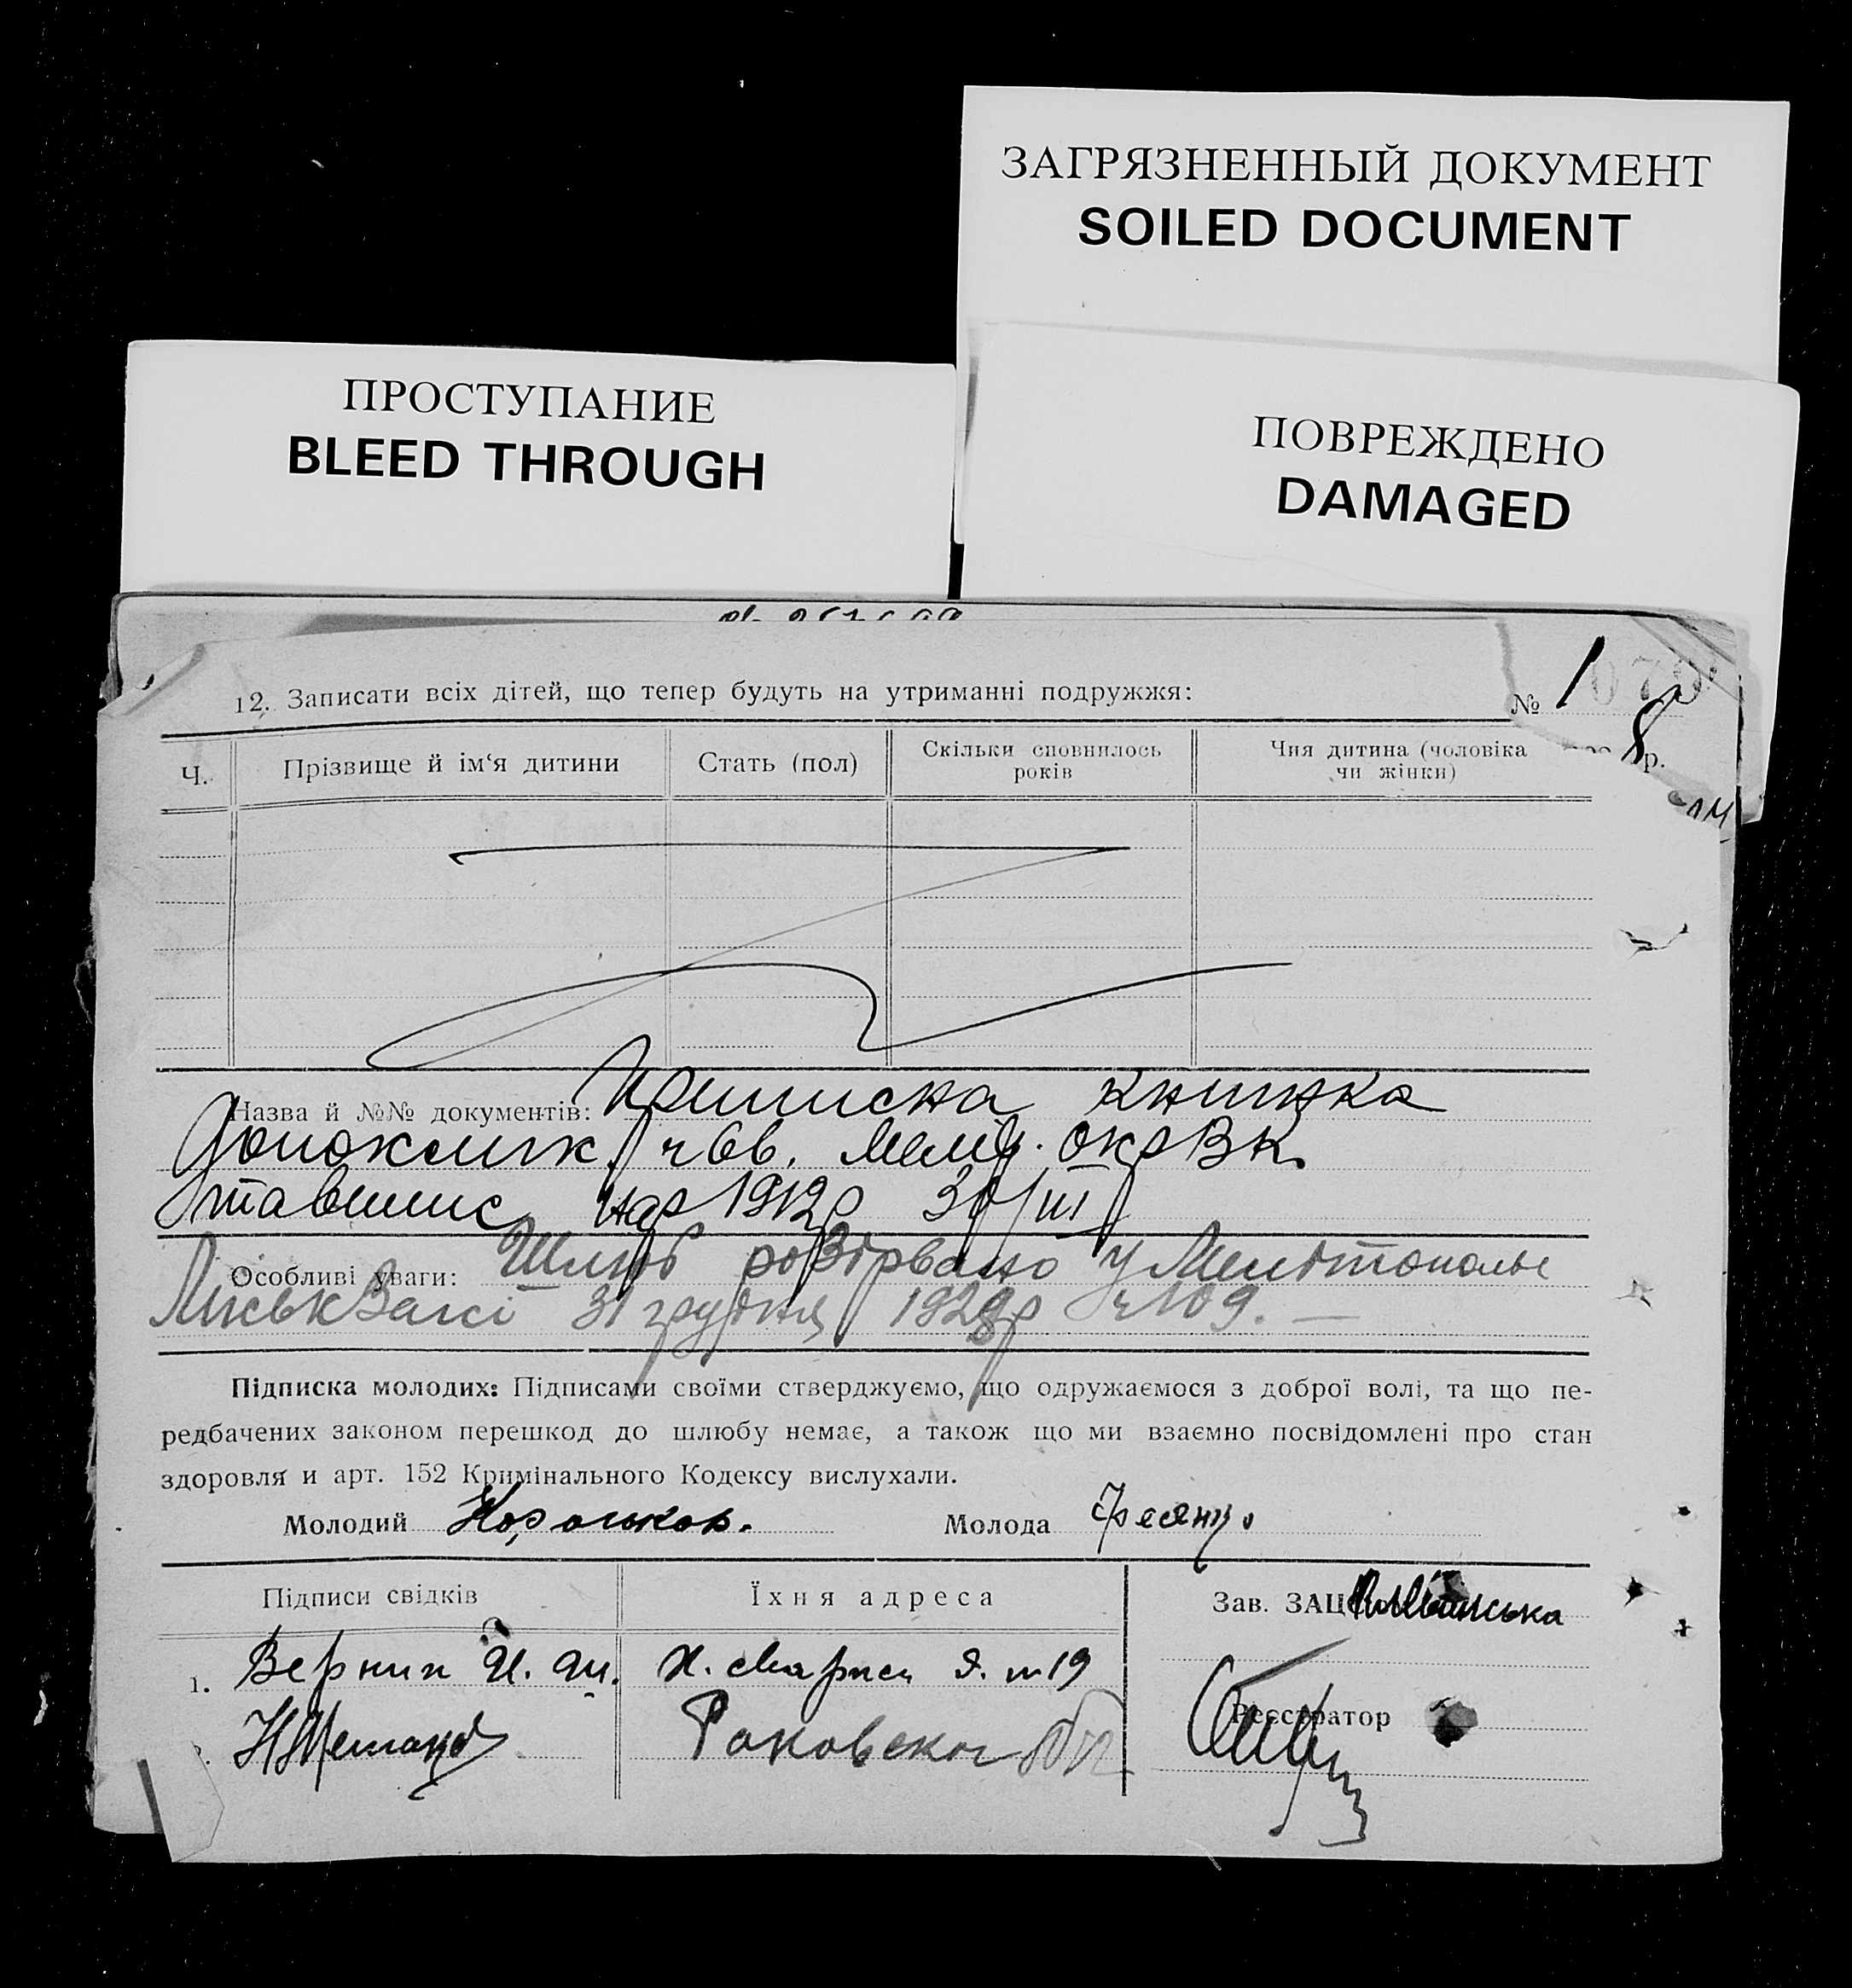 ЗАГРЯЗНЕННЫЙ ДОКУМЕНТ
SOILED DOCUMENT
ПРОСТУПАНИЕ
BLEED THROUGH
ПОВРЕЖДЕНО
DAMAGED
12. Записати всіх дітей, що тепер будуть на утриманні подружжя:
№ 1
р.
Ч.
Прізвище й ім‘я дитини
Стать (пол)
Скільки сповнилось
років
Чия дитина (чоловіка
чи жінки)
Назва й №№ документів: Приписна книжка
Допоклик. ч 66. Меліт. ОкрВк.
нар 1912р 30/III
Особливі уваги: Шлюб розірвано у Мелітопольс
МиськЗагсі 31 грудня 1929р ч 109. —
Підписка молодих: Підписами своїми стверджуємо, що одружаємося з доброї волі, та що пе-
редбачених законом перешкод до шлюбу немає, а також що ми взаємно посвідомлені про стан
здоровля и арт. 152 Кримінального Кодексу вислухали.
Молодий
Молода
Підписи свідків
Їхня адреса
Зав. ЗАЦС
1. Верник И.
К. Маркса 19
Раковской
Реєстратор